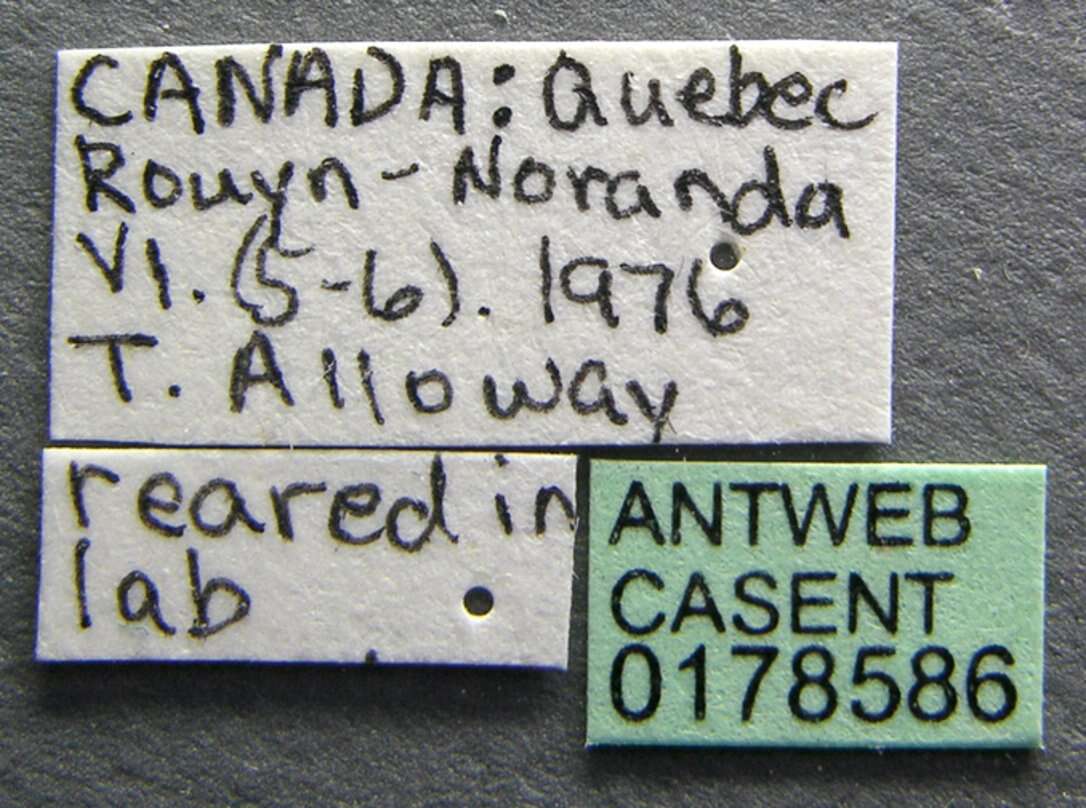 CANADA: Quebec
Rouyn-Noranda
VI. (5-6). 1976
T. Alloway
reared in
lab
ANTWEB
CASENT
0178586